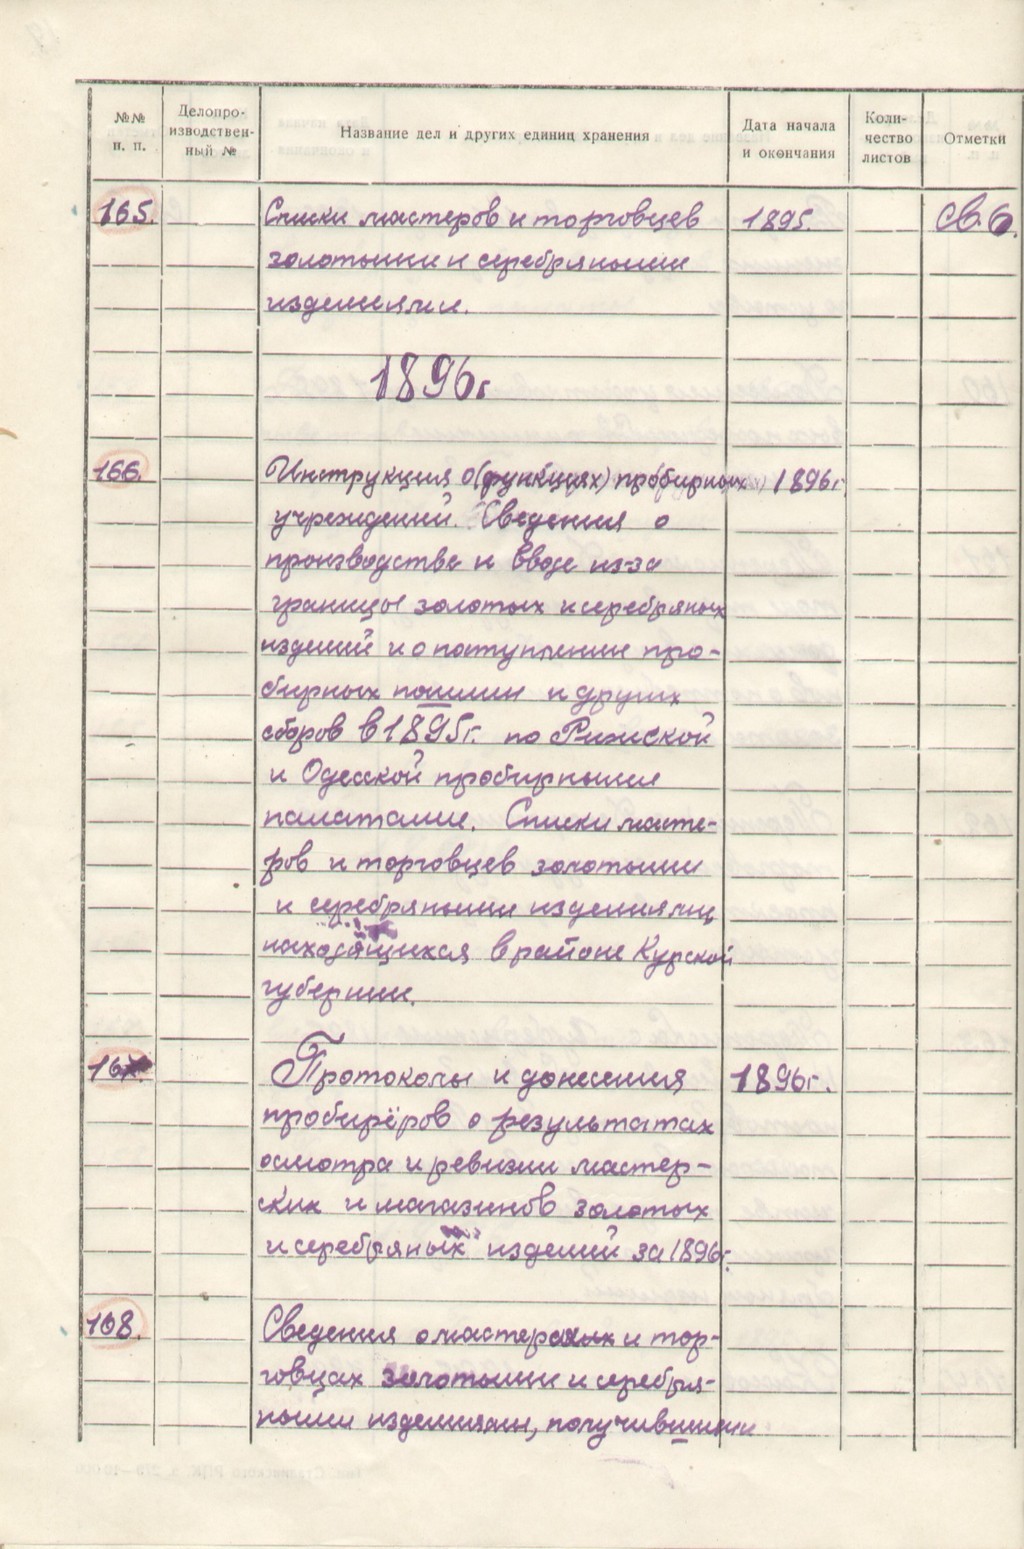 №№ п. п.
Делопро-
изводствен-
ный №
Название дел и других единиц хранения
Дата начала
и окончания
Коли-
чество
листов
Отметки
165. Списки мастеров и торговцев 1895. св. 6.
золотыми и серебряными
изделиями.
1896г
166. Инструкция о (функциях) пробирных 1896г
учреждений. Сведения о
производстве и ввозе из-за
границы золотых и серебряных
изделий и о поступлении про-
бирных пошлин и других
сборов в 1895г. по Рижской
и Одесской пробирными
палатами. Списки масте-
ров и торговцев золотыми
и серебряными изделиями,
находящихся в районе Курской
губернии.
167. Протоколы и донесения 1896г.
пробирёров о результатах
осмотра и ревизии мастер-
ских и магазинов золотых
и серебряных изделий за 1896г.
168. Сведения о мастерах и тор-
говцах золотыми и серебря-
ными изделиями, получившими